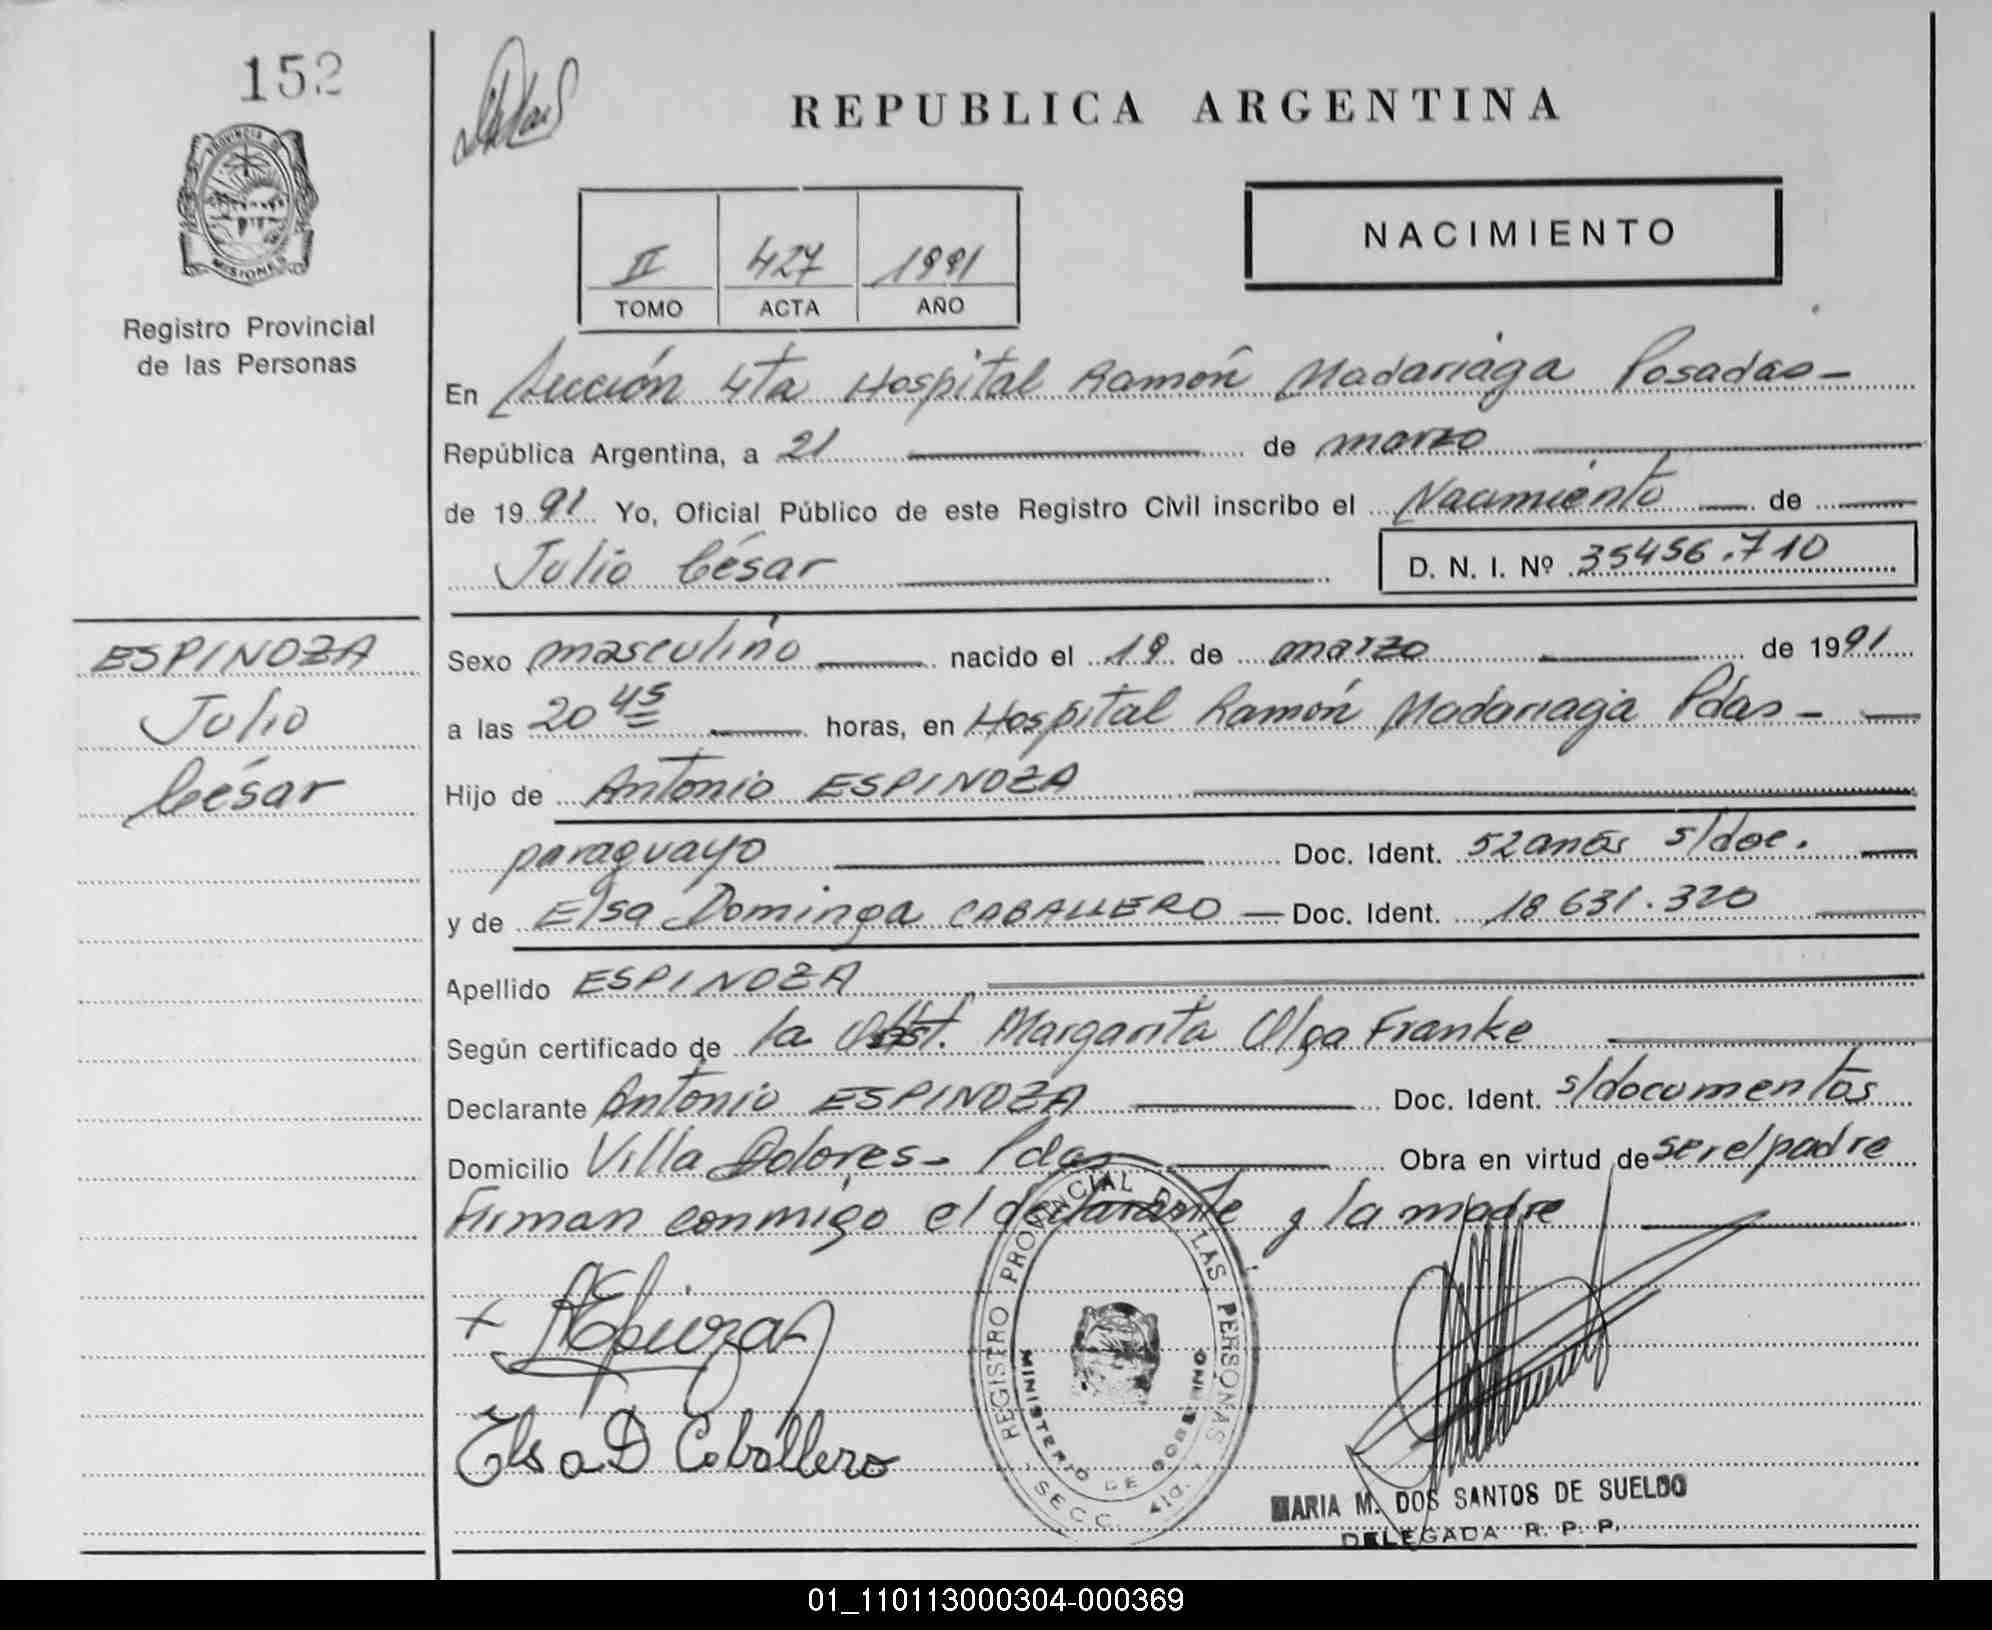 152
REPUBLICA ARGENTINA
PROVINCIA D
MISIONES
Registro Provincial
de las Personas
II 427 1991
TOMO ACTA AÑO
NACIMIENTO
En Sección 4ta Hospital Ramón Madariaga Posadas-
República Argentina, a 21 de marzo
de 1991 Yo, Oficial Público de este Registro Civil inscribo el Nacimiento de
Julio César D. N. I. Nº 35456.710
ESPINOZA
Julio
César
Sexo masculino nacido el 19 de marzo de 1991
a las 20 45 horas, en Hospital Ramón Madariaga Pdas-
Hijo de Antonio ESPINOZA
paraguayo Doc. Ident. 52 años s/doc.
y de Elsa Dominga CABALLERO - Doc. Ident. 18 631.320
Apellido ESPINOZA
Según certificado de la Obst. Margarita Olga Franke
Declarante Antonio ESPINOZA Doc. Ident. s/documentos
Domicilio Villa Dolores- Pdas Obra en virtud de ser el padre
Firman conmigo el declarante y la madre
REGISTRO PROVINCIAL DE LAS PERSONAS
MINISTERIO DE GOBIERNO
SECC. 4ta.
Elsa D Caballero
MARIA M. DOS SANTOS DE SUELDO
DELEGADA R. P. P.
01_110113000304-000369